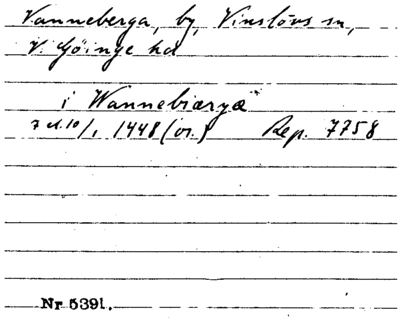 Vanneberga, by, Vinslövs sn,
V. Göinge hd
i Wannebiærgæ
7 el. 10/1 1448 (or.) Rep. 7758
Nr 5391.